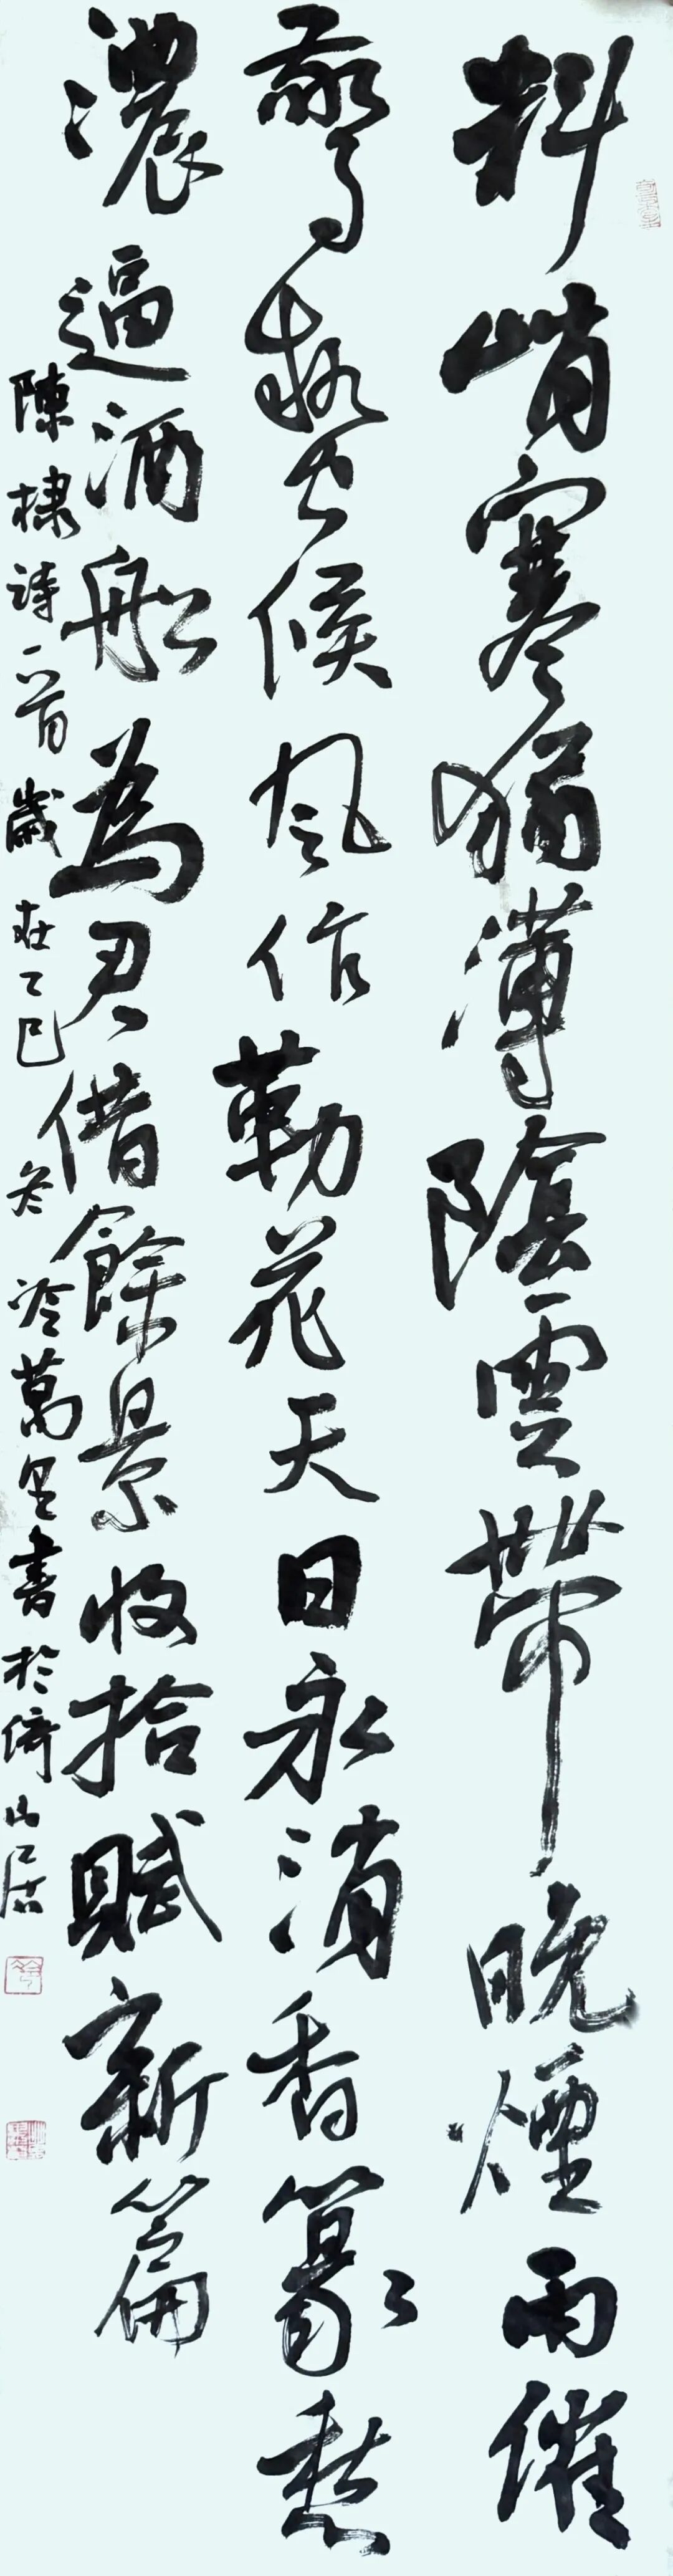 料峭寒猶薄陰雲帶晚煙雨催
驚蟄候風作勒花天日永消香篆愁
濃逼酒船為君借餘景收拾賦新篇
陳棣詩一首歲在乙巳冬冷萬里書於倚山居